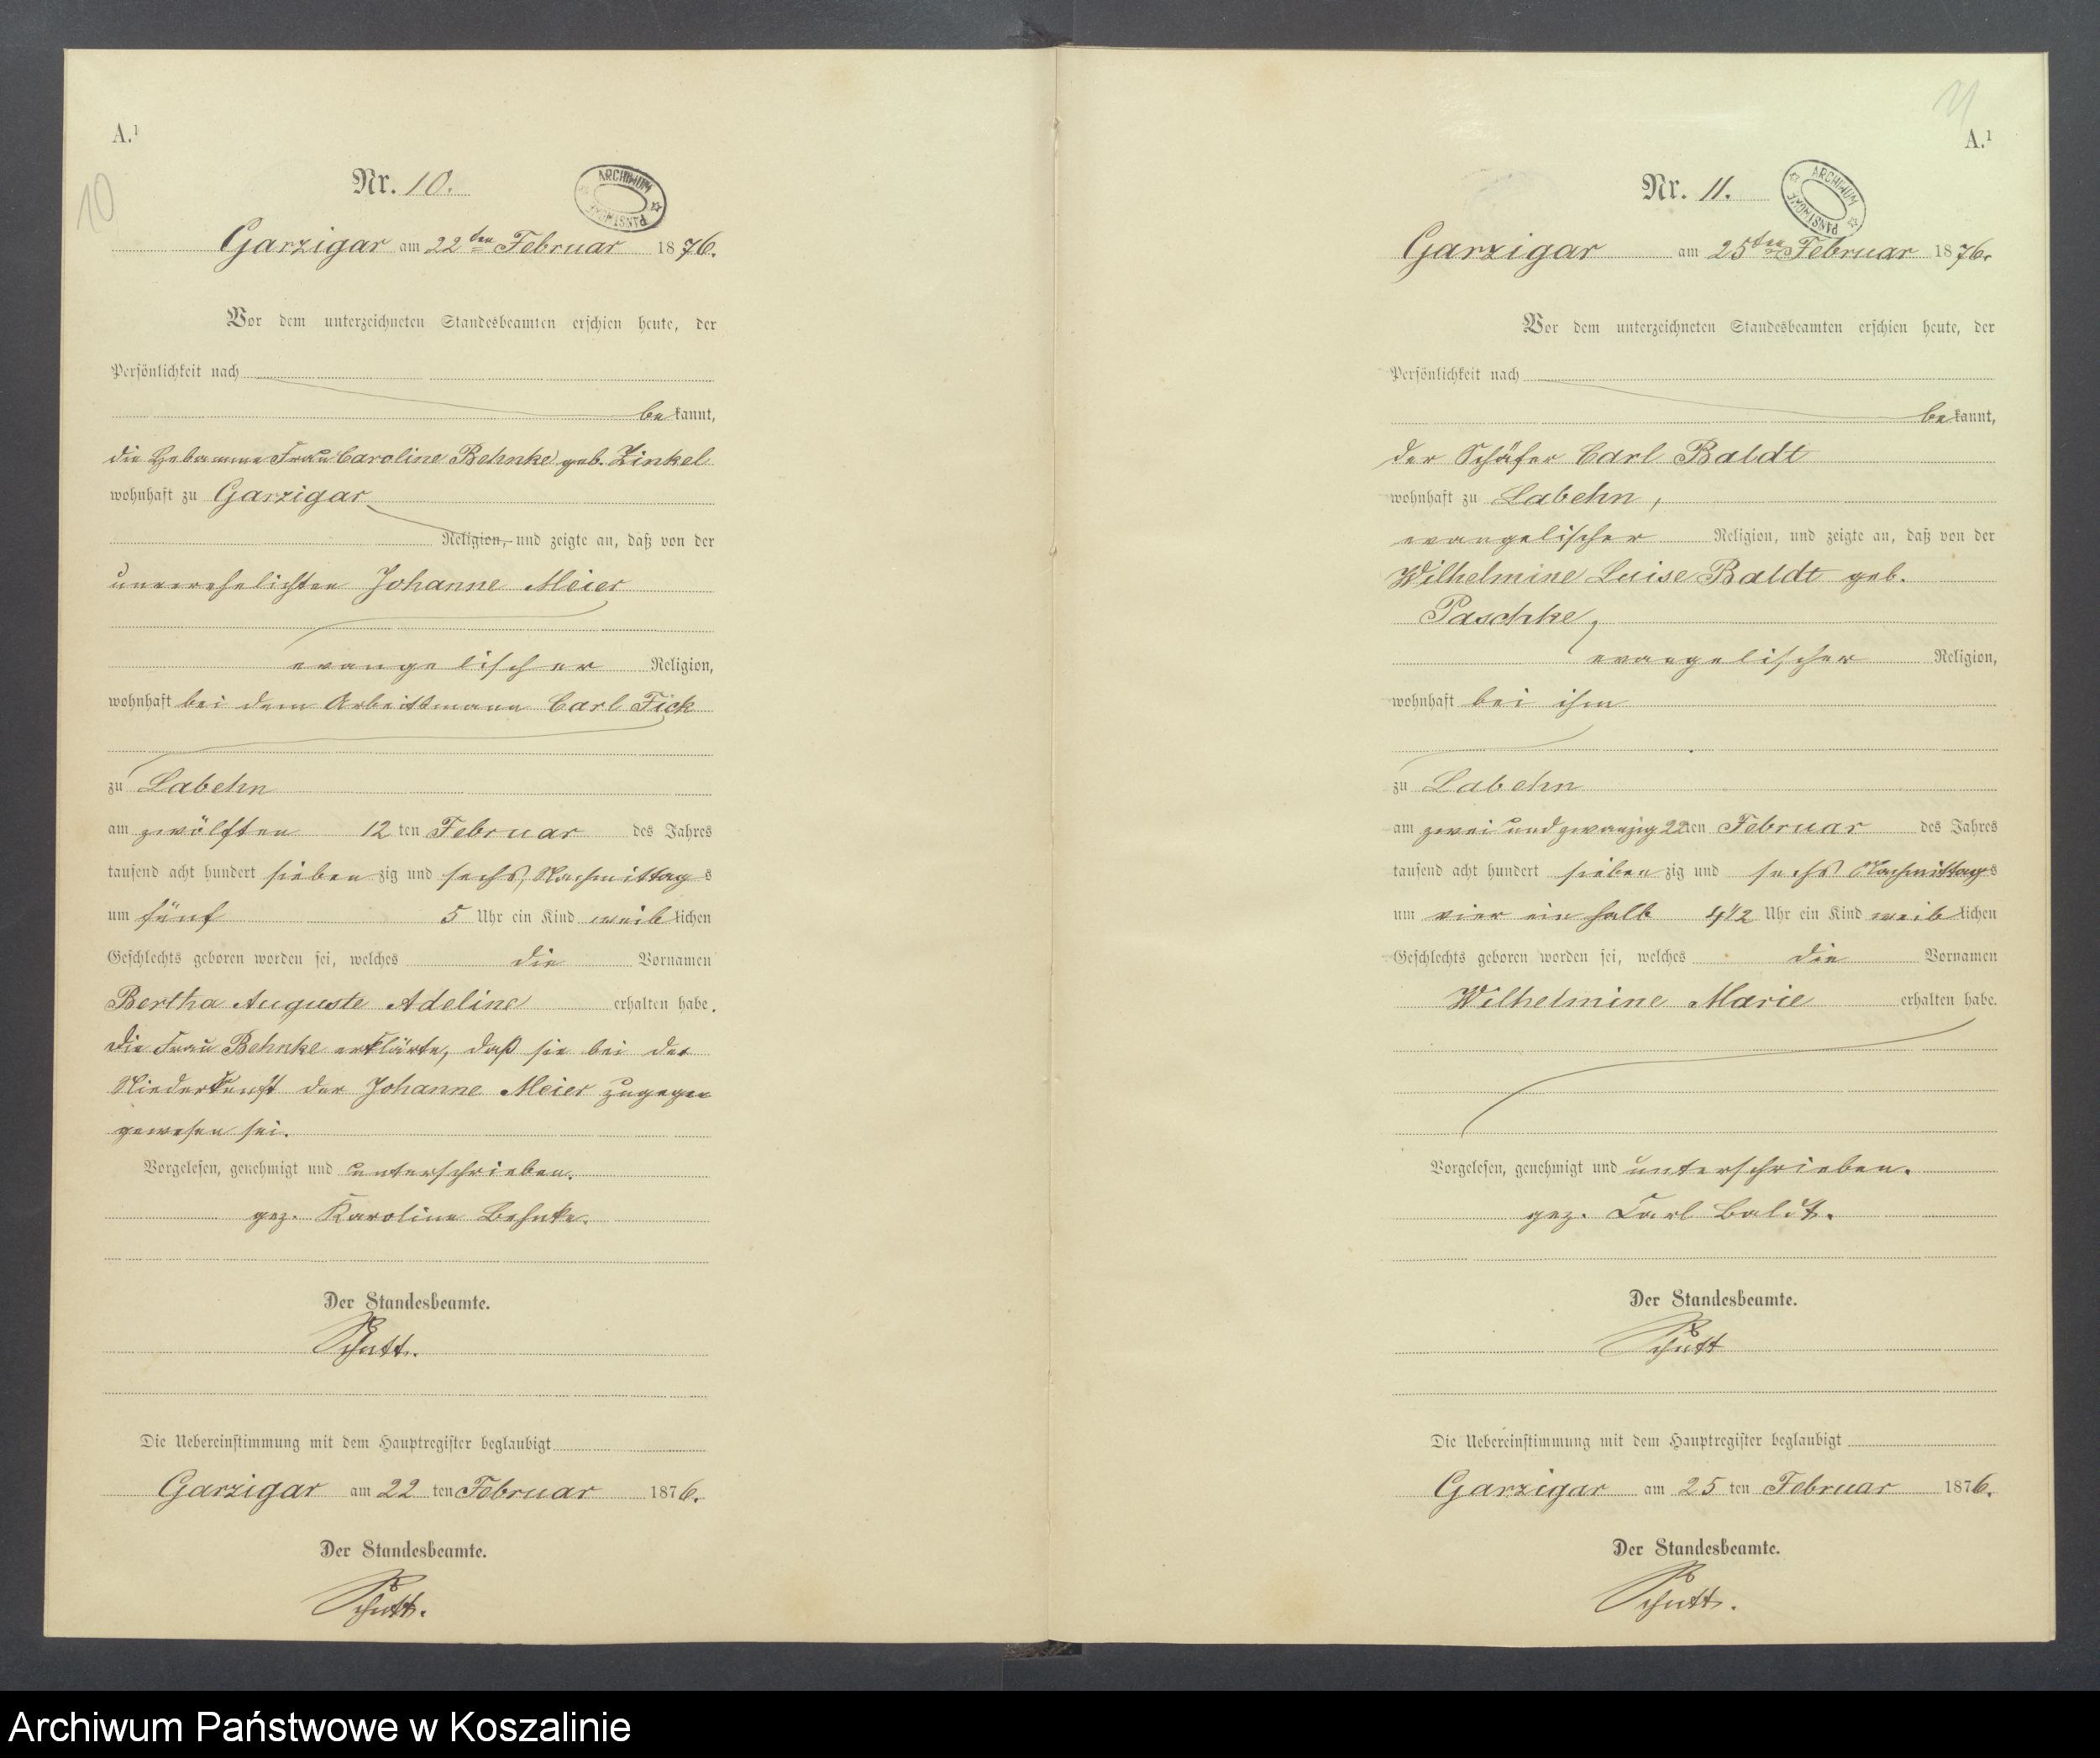 A.¹
10
Nr. 10.
ARCHIWUM PAŃSTWOWE
Garzigar am 22ten Februar 1876.
Vor dem unterzeichneten Standesbeamten erschien heute, der
Persönlichkeit nach
bekannt,
die Hebamme Frau Caroline Behnke geb. Zinkel
wohnhaft zu Garzigar
Religion, und zeigte an, daß von der
unverehelichten Johanne Meier
evangelischer Religion,
wohnhaft bei dem Arbeitsmann Carl Fick
zu Labehn
am zwölften 12ten Februar des Jahres
tausend acht hundert siebenzig und sechs, Nachmittags
um fünf 5 Uhr ein Kind weiblichen
Geschlechts geboren worden sei, welches die Vornamen
Bertha Auguste Adeline erhalten habe.
Die Frau Behnke erklärte, daß sie bei der
Niederkunft der Johanne Meier zugegen
gewesen sei.
Vorgelesen, genehmigt und unterschrieben.
gez. Karoline Behnke.
Der Standesbeamte.
Schütt.
Die Uebereinstimmung mit dem Hauptregister beglaubigt
Garzigar am 22ten Februar 1876.
Der Standesbeamte.
Schütt.
11
A.¹
Nr. 11.
ARCHIWUM PAŃSTWOWE
Garzigar am 25ten Februar 1876.
Vor dem unterzeichneten Standesbeamten erschien heute, der
Persönlichkeit nach
bekannt,
der Schäfer Carl Baldt
wohnhaft zu Labehn,
evangelischer Religion, und zeigte an, daß von der
Wilhelmine Luise Baldt geb.
Paschke,
evangelischer Religion,
wohnhaft bei ihm
zu Labehn
am zwei und zwanzig 22ten Februar des Jahres
tausend acht hundert siebenzig und sechs Nachmittags
um vier ein halb 4½ Uhr ein Kind weiblichen
Geschlechts geboren worden sei, welches die Vornamen
Wilhelmine Marie erhalten habe.
Vorgelesen, genehmigt und unterschrieben.
gez. Carl Baldt.
Der Standesbeamte.
Schütt
Die Uebereinstimmung mit dem Hauptregister beglaubigt
Garzigar am 25ten Februar 1876.
Der Standesbeamte.
Schütt.
Archiwum Państwowe w Koszalinie